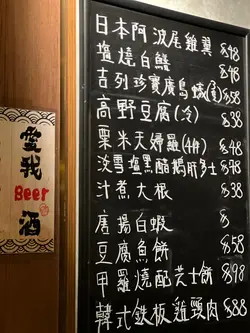 愛我
Beer
酒
日本阿波尾雞翼 $48
塩燒白鱔 $48
吉列珍寶廣島蠔(隻) $58
高野豆腐(冷) $38
粟米天婦羅(4件) $48
淡雪塩黑醋鵝肝多士 $98
汁煮大根 $38
唐揚白蝦 $
豆腐魚餅 $58
甲羅燒配芝士餅 $98
韓式鉄板雞頸肉 $88